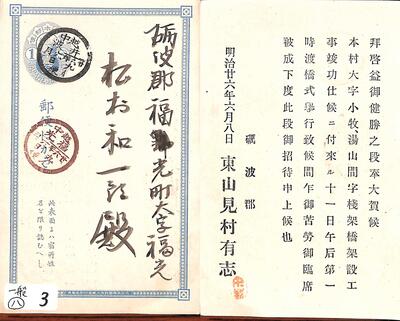 拜啓益御健勝之段奉大賀候
本村大字小牧湯山間字棧架橋架設工
事竣功仕候ニ付來ル十一日午后第一
時渡橋式擧行致候間乍御苦勞御臨席
被成下度此段御招待申上候也
明治廿六年六月八日
礪波郡
東山見村有志
礪波郡福光町大字福光
松村和一郎殿
郵便
此表面ニハ宿所姓
名を限り認むへし
1
越中
越中
一般
八
3